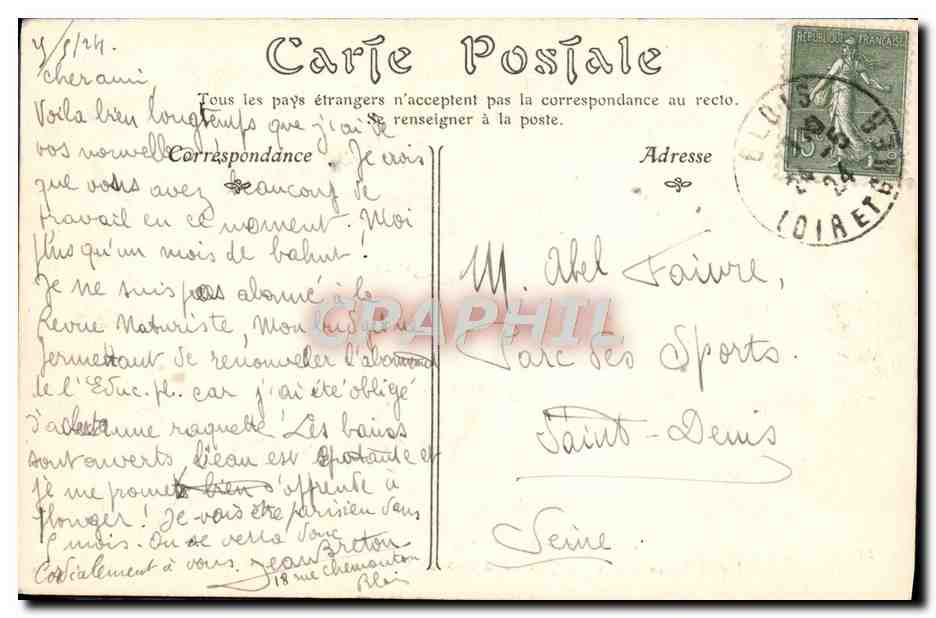 5/5/24.
Carte Postale
RÉPUBLIQUE FRANÇAISE
15
BLOIS
-5
24
LOIR ET CHER
Cher ami,
Tous les pays étrangers n'acceptent pas la correspondance au recto.
Se renseigner à la poste.
Voila bien longtemps que j'ai de
vos nouvelles. Je crois
Correspondance
Adresse
que vous avez beaucoup de
travail en ce moment. Moi
plus qu'un mois de bahut!
Je ne suis pas abonné à la
Revue Naturiste, Mon budget
permettant de renouveler l'abon
de l'Educ. ph. car j'ai été obligé
une raquette. Les bains
sont ouverts, l'eau est et
je me promets bien d'apprendre à
plonger! Je vais être parisien dans
5 mois. On se verra donc
Cordialement à vous. Jean Breton
18 rue Chemonton
Blois
M. Abel Faivre,
Parc des Sports.
Saint-Denis
Seine.
CPAPHIL